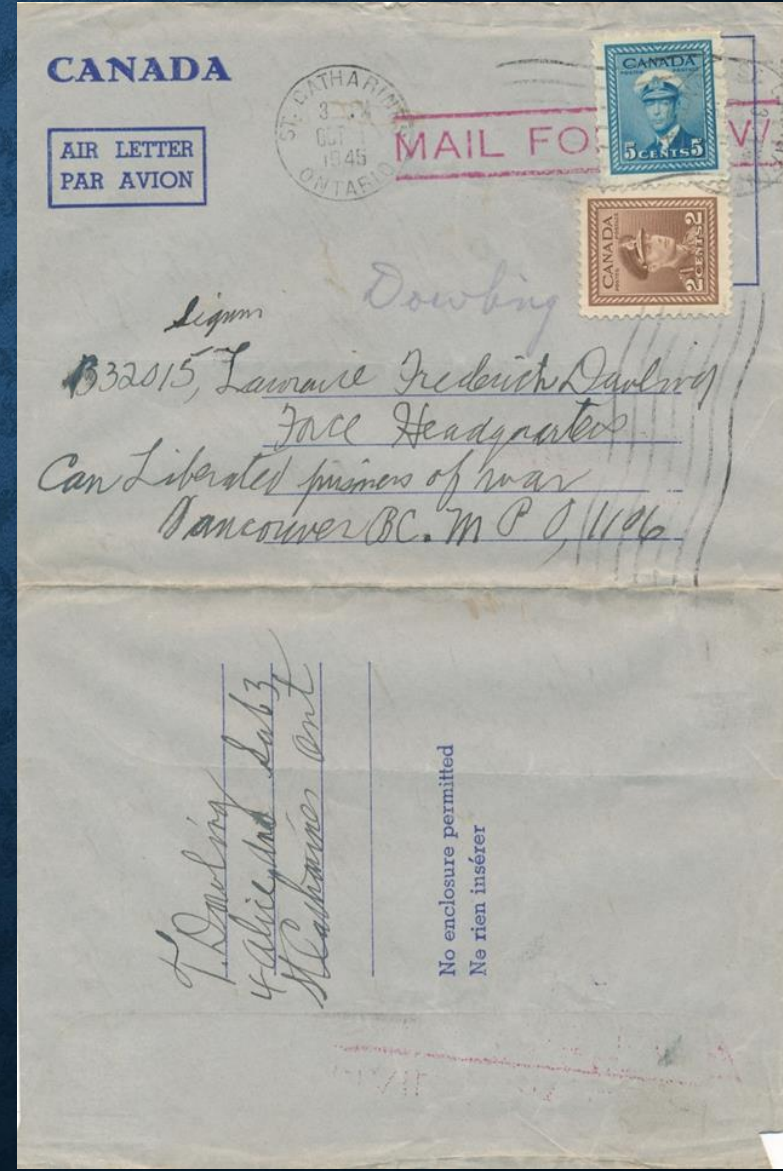 CANADA
AIR LETTER
PAR AVION
ST. CATHARINES
OCT
1945
ONTARIO
MAIL FO
CANADA
POSTES POSTAGE
5 CENTS 5
CANADA
2 CENTS 2
Dowling
Signm
B32015, Lawraice Frederich Dowling
Force Headquarters
Can Liberated prisoners of war
Vancouver BC. M P O, 1106
T. Dowling
4 alice
St Catharines Ont
No enclosure permitted
Ne rien insérer